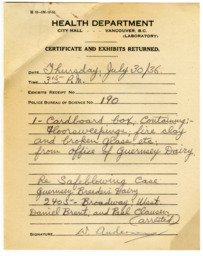 HEALTH DEPARTMENT
CITY HALL - - - VANCOUVER, B.C.
(LABORATORY)
CERTIFICATE AND EXHIBITS RETURNED.
DATE Thursday, July 30/36
TIME 3:15 P.M.
EXHIBITS RECEIPT NO.
POLICE BUREAU OF SCIENCE NO. 190
1- Cardboard box, Containing:-
Floorsweepings, fire clay
and broken glass etc.
from Office of Guernsey Dairy
Re Safeblowing Case
Guernsey Breeders Dairy
2405- Broadway West
Daniel Brent, and Paul Clausen
(arrested)
SIGNATURE